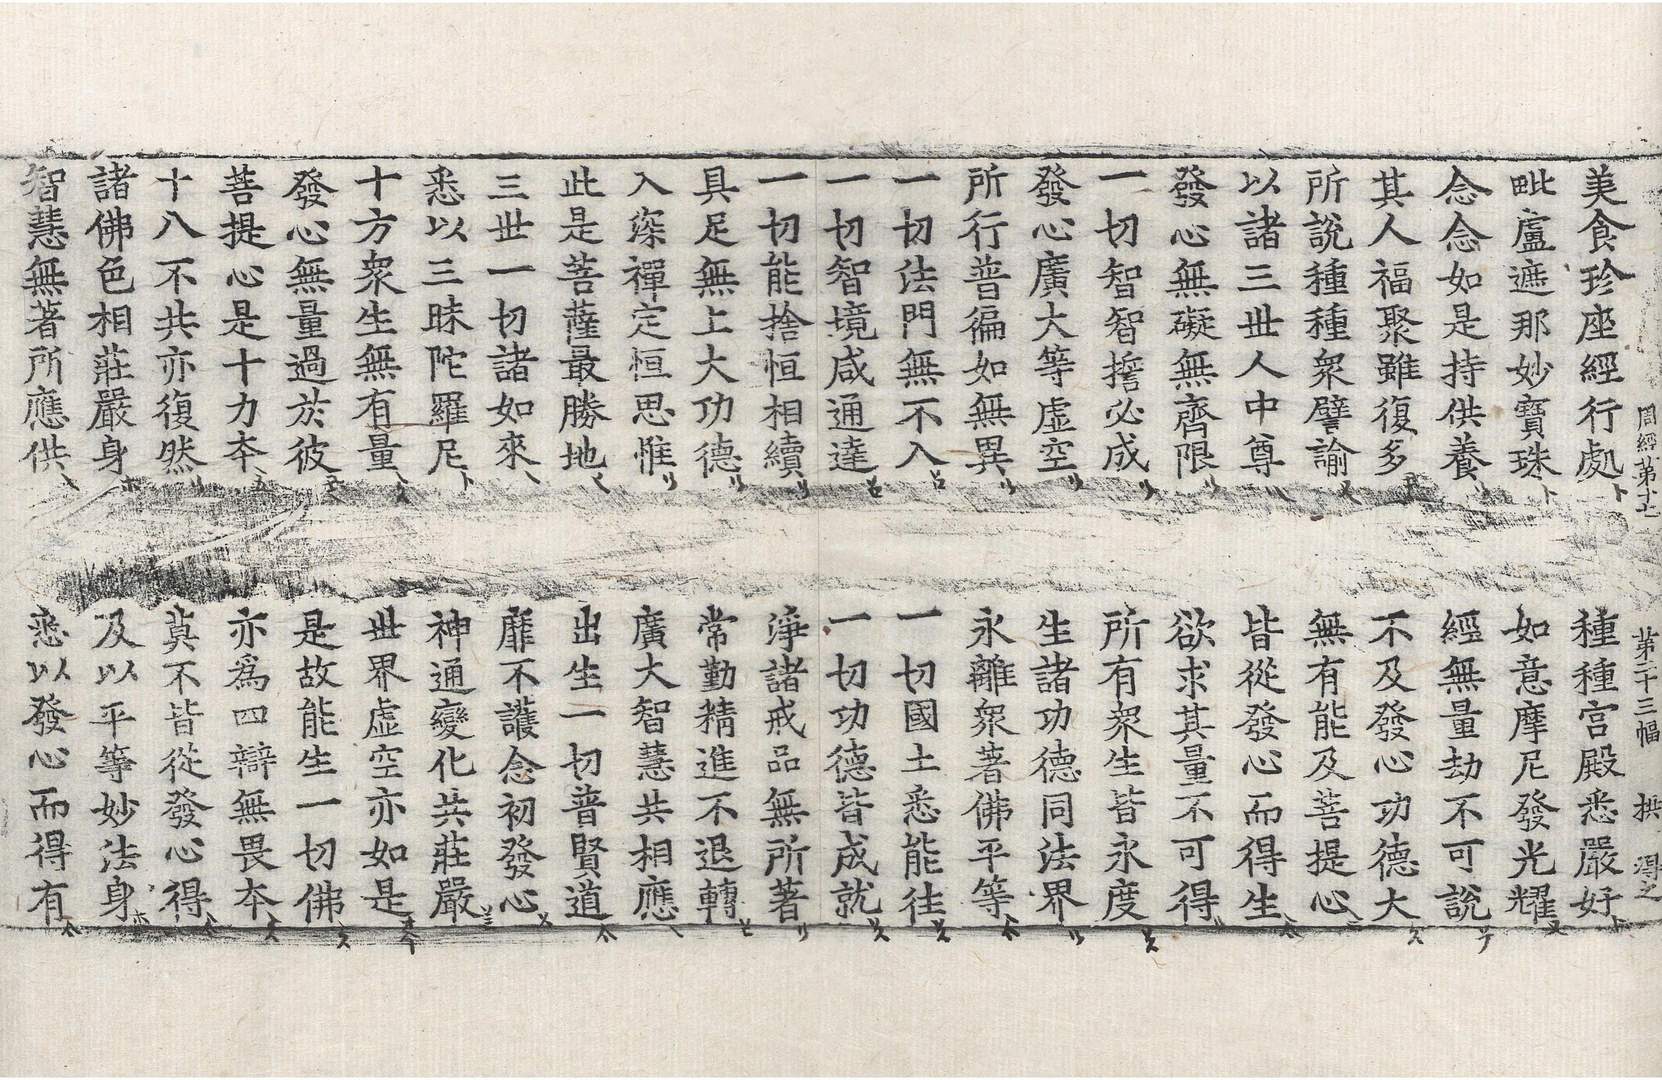 周經第十七 第二十三幅 拱 得之
美食珍座經行處 種種宮殿悉嚴好
毗盧遮那妙寶珠 如意摩尼發光耀
念念如是持供養 經無量劫不可說
其人福聚雖復多 不及發心功德大
所說種種衆譬諭 無有能及菩提心
以諸三世人中尊 皆從發心而得生
發心無礙無齊限 欲求其量不可得
一切智智誓必成 所有衆生皆永度
發心廣大等虛空 生諸功德同法界
所行普徧如無異 永離衆著佛平等
一切法門無不入 一切國土悉能往
一切智境咸通達 一切功德皆成就
一切能捨恒相續 淨諸戒品無所著
具足無上大功德 常勤精進不退轉
入深禪定恒思惟 廣大智慧共相應
此是菩薩最勝地 出生一切普賢道
三世一切諸如來 靡不護念初發心
悉以三昧陀羅尼 神通變化共莊嚴
十方衆生無有量 世界虛空亦如是
發心無量過於彼 是故能生一切佛
菩提心是十力本 亦爲四辯無畏本
十八不共亦復然 莫不皆從發心得
諸佛色相莊嚴身 及以平等妙法身
智慧無著所應供 悉以發心而得有